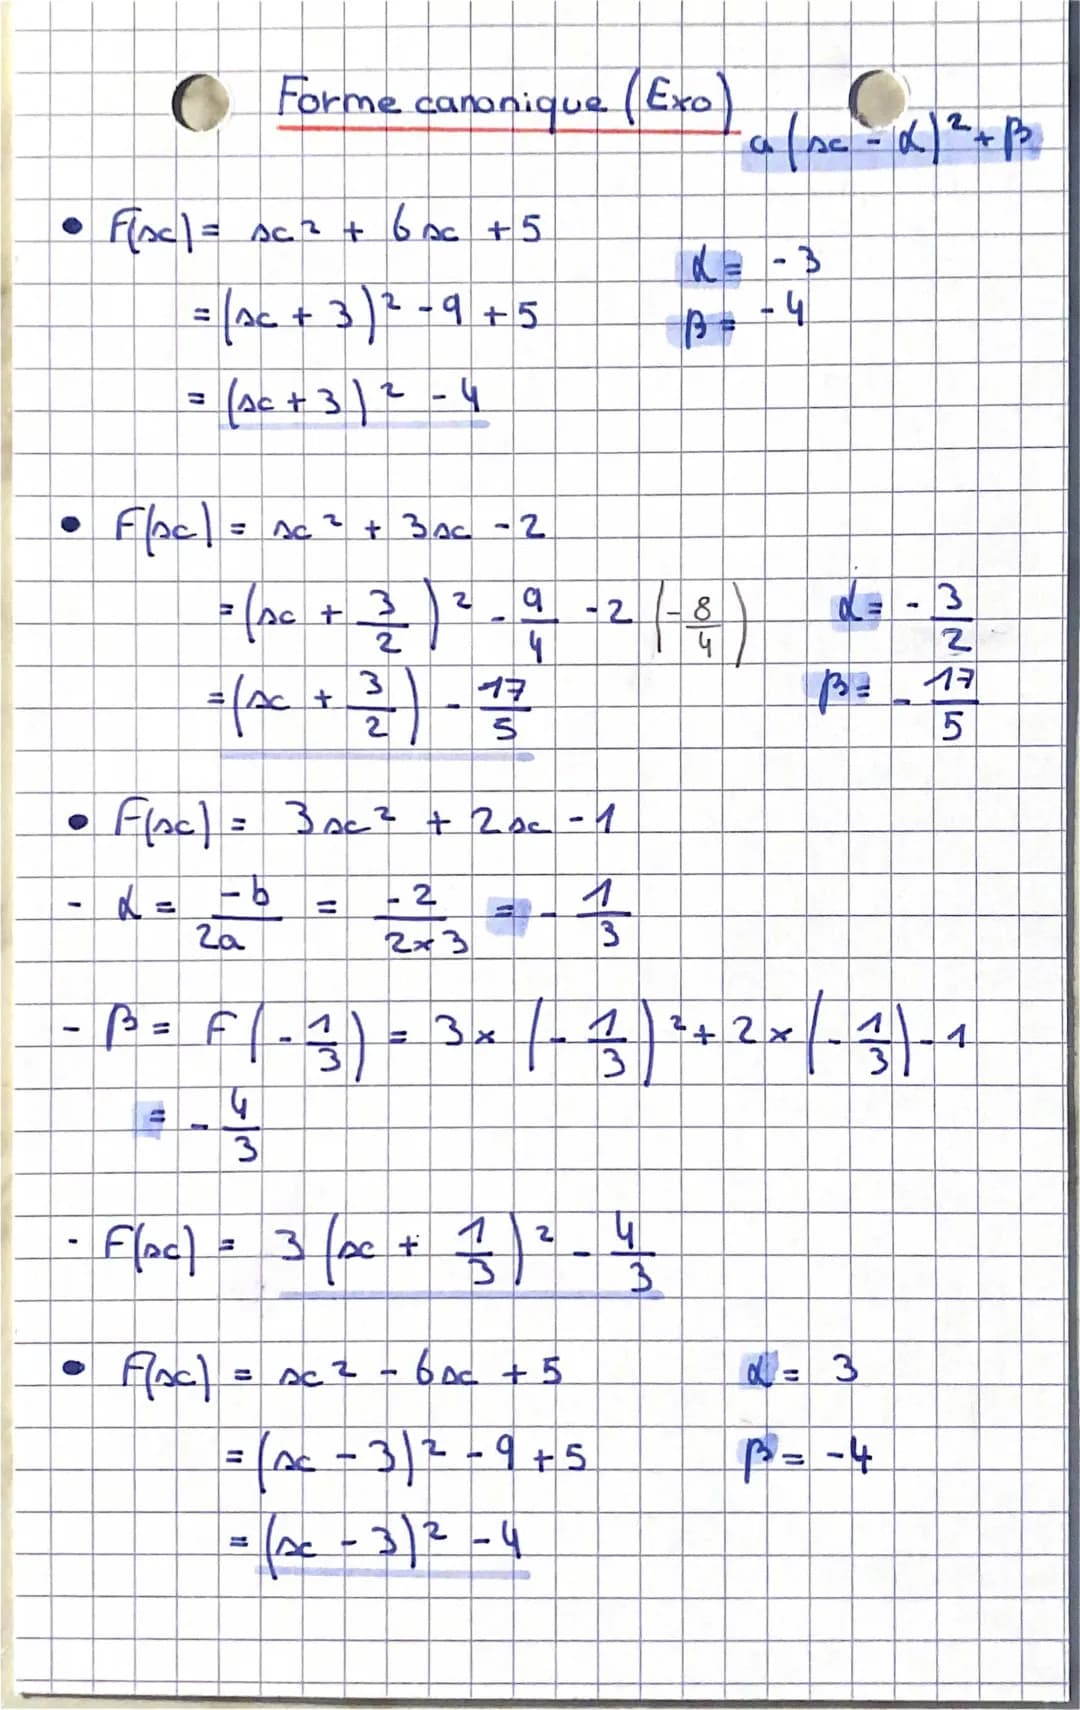 Forme canonique (Exo)
a(x - α)² + β
• F(x) = x² + 6x + 5
α = -3
= (x + 3)² - 9 + 5
β = -4
= (x + 3)² - 4
• F(x) = x² + 3x - 2
= (x + 3/2)² - 9/4 - 2 (-8/4)
α = - 3/2
= (x + 3/2) - 17/5
β = - 17/5
• F(x) = 3x² + 2x - 1
- α = -b/2a = -2/2×3 = - 1/3
- β = F(- 1/3) = 3 × (- 1/3)² + 2 × (- 1/3) - 1
= - 4/3
- F(x) = 3(x + 1/3)² - 4/3
• F(x) = x² - 6x + 5
α = 3
= (x - 3)² - 9 + 5
β = -4
= (x - 3)² - 4